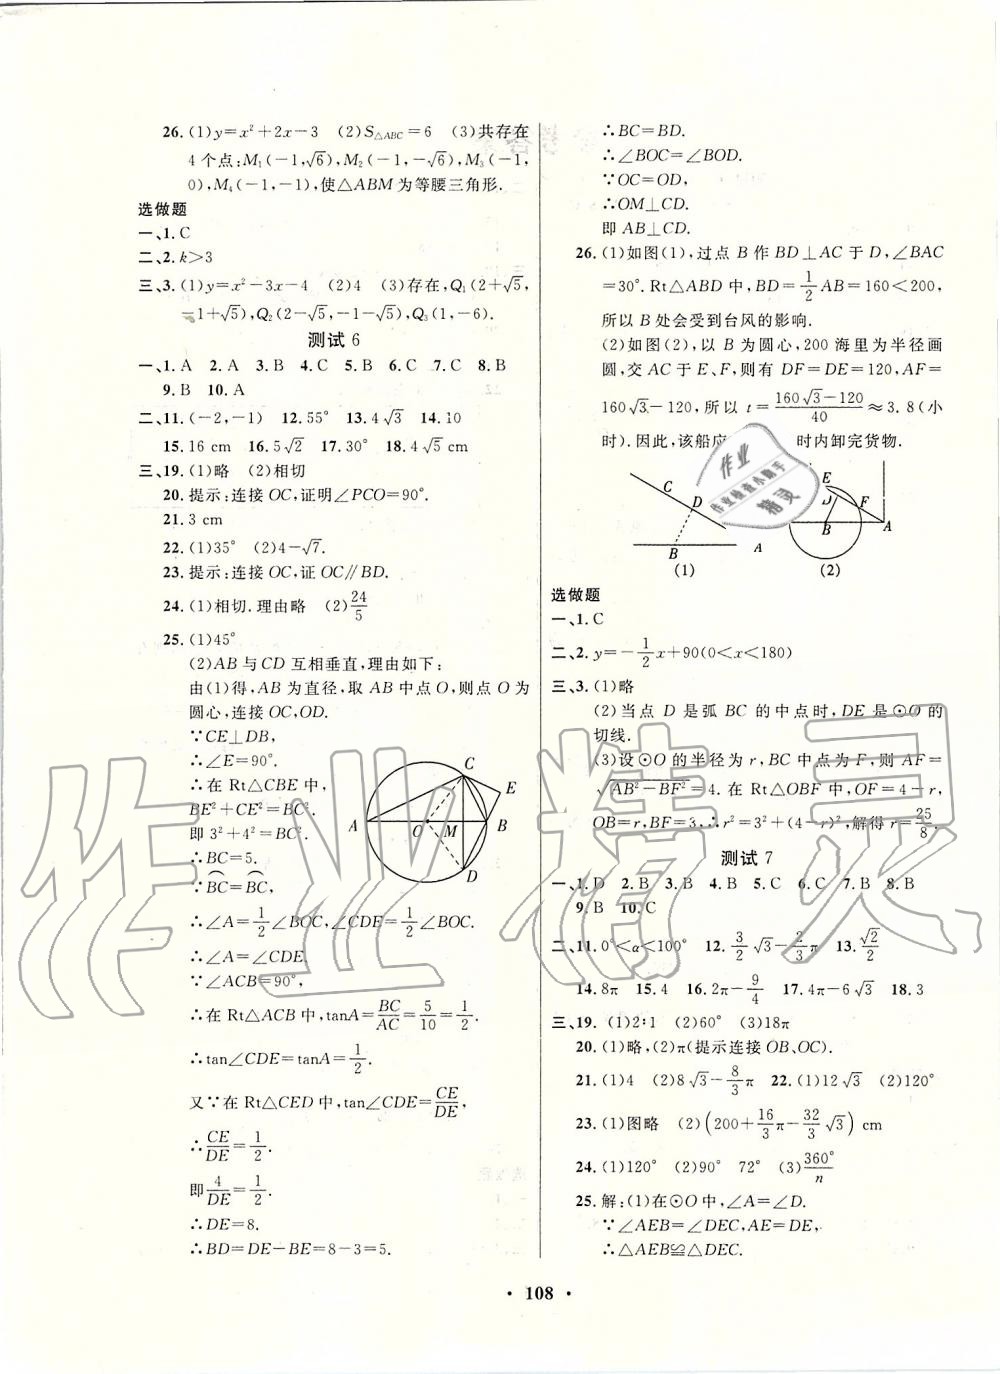 26.(1)y=x²+2x-3 (2)S△ABC=6 (3)共存在
4个点:M₁(-1,√6),M₂(-1,-√6),M₃(-1,
0),M₄(-1,-1),使△ABM为等腰三角形.
选做题
一、1.C
二、2.k>3
三、3.(1)y=x²-3x-4 (2)4 (3)存在,Q₁(2+√5,
-1+√5),Q₂(2-√5,-1-√5),Q₃(1,-6).
测试6
一、1.A 2.A 3.B 4.C 5.B 6.C 7.C 8.B
9.B 10.A
二、11.(-2,-1) 12.55° 13.4√3 14.10
15.16 cm 16.5√2 17.30° 18.4√5 cm
三、19.(1)略 (2)相切
20.提示:连接OC,证明∠PCO=90°.
21.3 cm
22.(1)35° (2)4-√7.
23.提示:连接OC,证OC∥BD.
24.(1)相切.理由略 (2)24/5
25.(1)45°
(2)AB与CD互相垂直,理由如下:
由(1)得,AB为直径,取AB中点O,则点O为
圆心,连接OC,OD.
∵CE⊥DB,
∴∠E=90°.
∴在Rt△CBE中,
BE²+CE²=BC².
即3²+4²=BC².
∴BC=5.
∵⌒BC=⌒BC,
∴∠A=1/2∠BOC,∠CDE=1/2∠BOC.
∴∠A=∠CDE.
∵∠ACB=90°,
∴在Rt△ACB中,tanA=BC/AC=5/10=1/2.
∴tan∠CDE=tanA=1/2.
又∵在Rt△CED中,tan∠CDE=CE/DE,
∴CE/DE=1/2.
即4/DE=1/2.
∴DE=8.
∴BD=DE-BE=8-3=5.
C
E
A
O
M
B
D
∴BC=BD.
∴∠BOC=∠BOD.
∵OC=OD,
∴OM⊥CD.
即AB⊥CD.
26.(1)如图(1),过点B作BD⊥AC于D,∠BAC
=30°.Rt△ABD中,BD=1/2AB=160<200,
所以B处会受到台风的影响.
(2)如图(2),以B为圆心,200海里为半径画
圆,交AC于E、F,则有DF=DE=120,AF=
160√3-120,所以t=(160√3-120)/40≈3.8(小
时).因此,该船应 时内卸完货物.
C
D
B
A
(1)
E
D
F
B
A
(2)
选做题
一、1.C
二、2.y=-1/2x+90(0<x<180)
三、3.(1)略
(2)当点D是弧BC的中点时,DE是⊙O的
切线.
(3)设⊙O的半径为r,BC中点为F,则AF=
√(AB²-BF²)=4.在Rt△OBF中,OF=4-r,
OB=r,BF=3,∴r²=3²+(4-r)²,解得r=25/8.
测试7
一、1.D 2.B 3.B 4.B 5.C 6.C 7.B 8.B
9.B 10.C
二、11.0°<α<100° 12.3/2√3-2/3π 13.√2/2
14.8π 15.4 16.2π-9/4 17.4π-6√3 18.3
三、19.(1)2:1 (2)60° (3)18π
20.(1)略,(2)π(提示连接OB、OC).
21.(1)4 (2)8√3-8/3π 22.(1)12√3 (2)120°
23.(1)图略 (2)(200+16/3π-32/3√3) cm
24.(1)120° (2)90° 72° (3)360°/n
25.解:(1)在⊙O中,∠A=∠D.
∵∠AEB=∠DEC,AE=DE,
∴△AEB≌△DEC.
• 108 •
作业精灵
作业
作业检查小助手
精灵